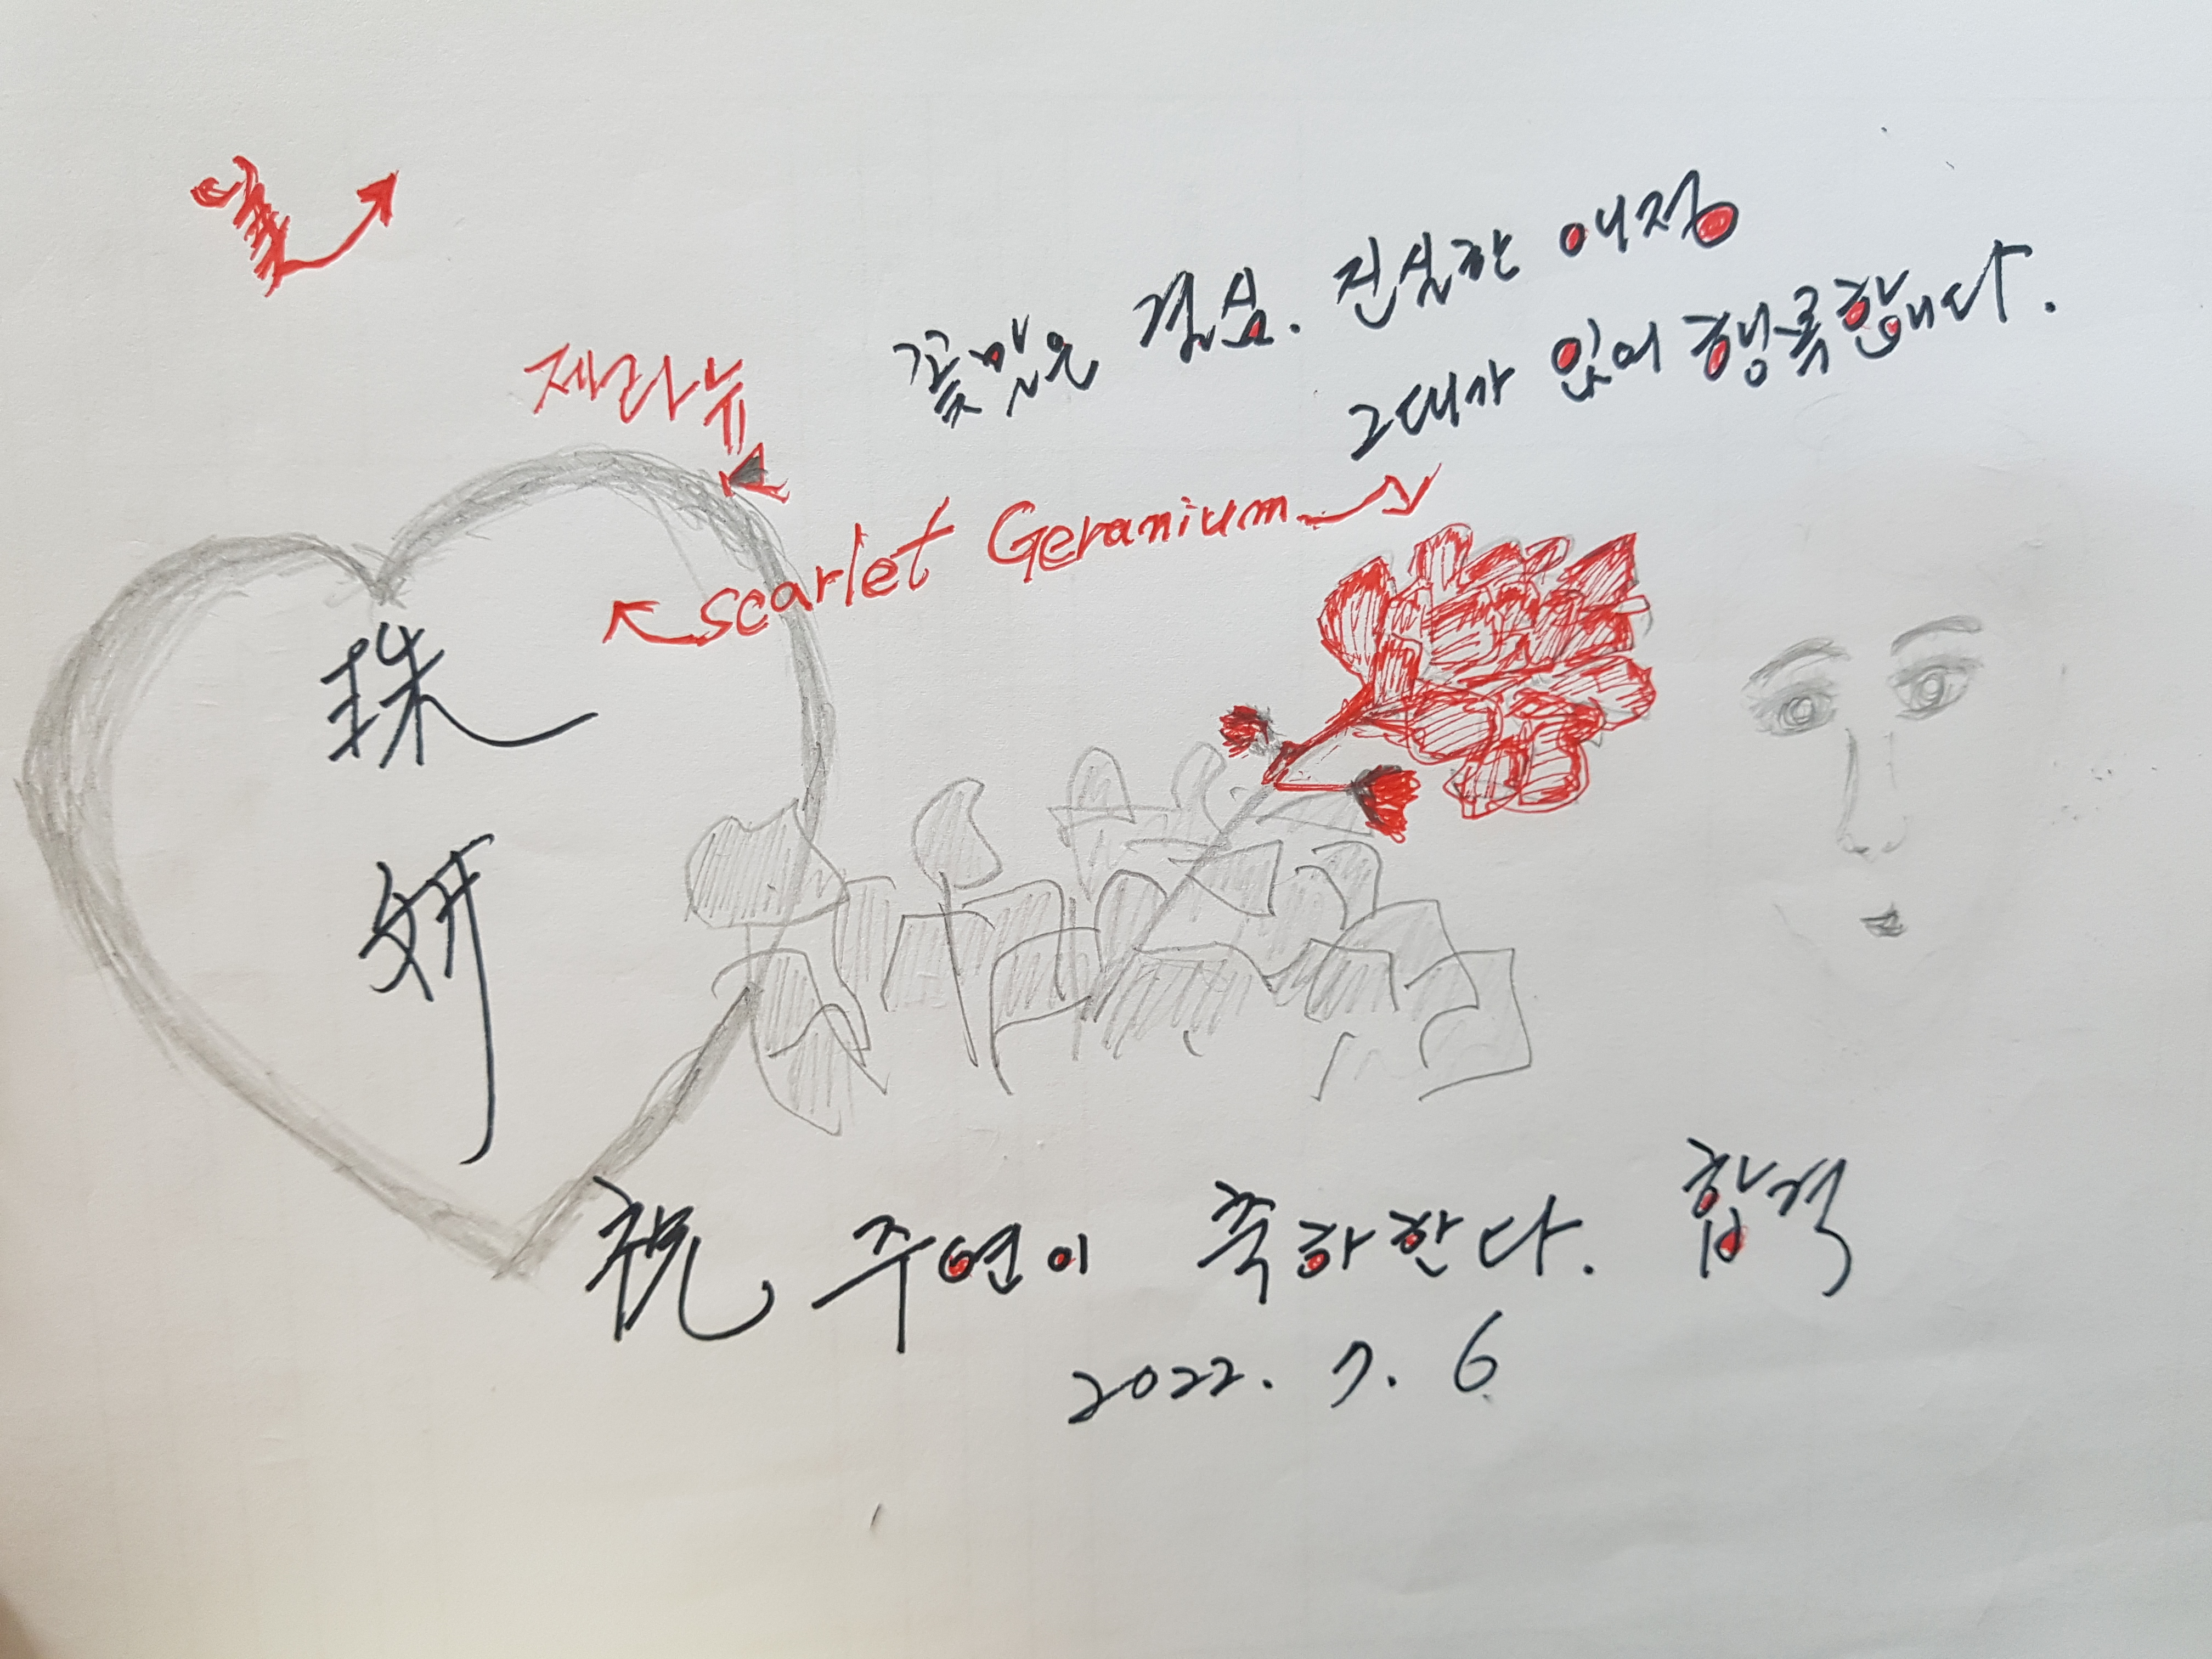 美
제라늄
꽃말은 결심. 진실한 애정
그대가 있어 행복합니다.
scarlet Geranium
珠
妍
祝 주연이 축하한다. 합격
2022. 7. 6